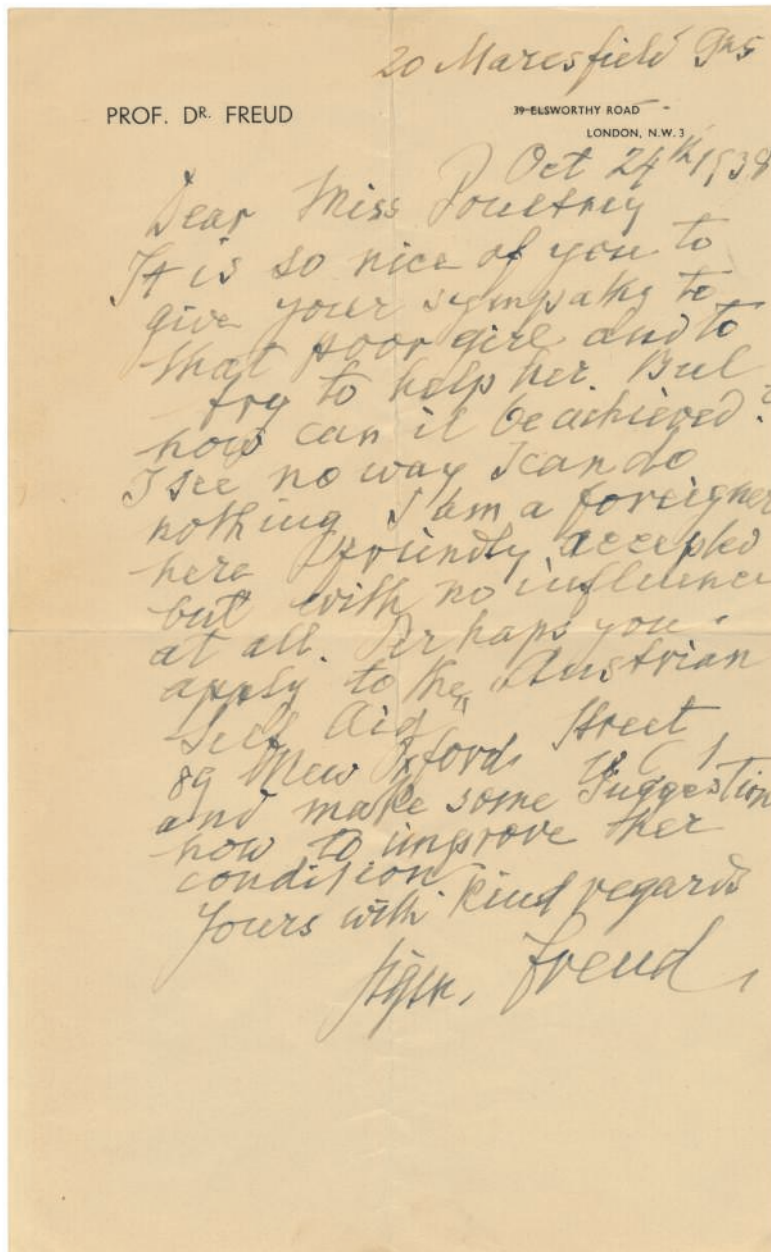 20 Maresfield Gns
PROF. DR. FREUD
39 ELSWORTHY ROAD
LONDON, N.W. 3
Oct 24th 1938
Dear Miss
It is so nice of you to
give your sympathy to
that poor girl and to
try to help her. But
how can it be achieved?
I see no way I can do
nothing I am a foreigner
here friendly accepted
but with no influence
at all. Perhaps you
apply to the "Austrian
Self Aid"
89 New Oxford Street
W C 1
and make some suggestion
how to improve her
condition
Yours with kind regards
Sigm. Freud